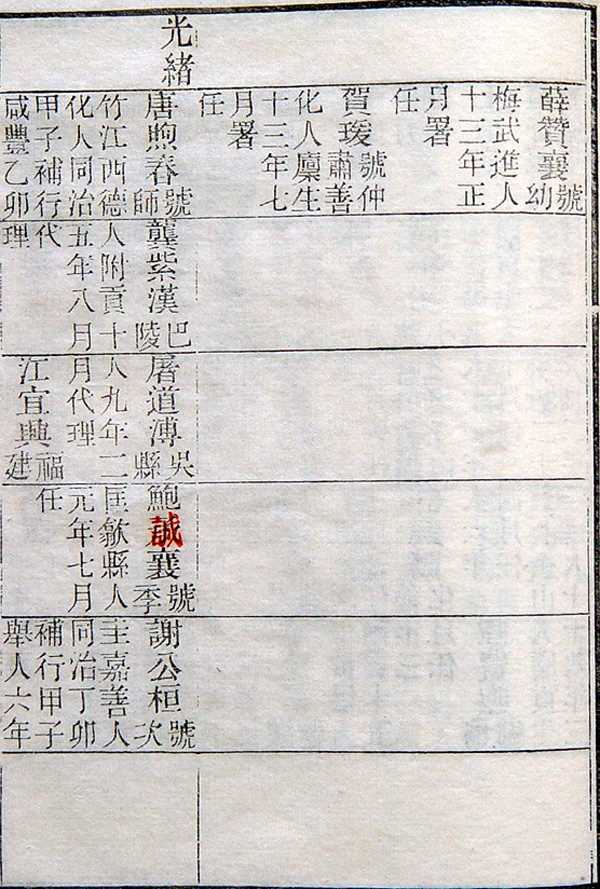 光緒
薛贊襄號幼
梅武進人
十三年正
月署
任
賀瑗號仲
肅善
化人廩生
十三年七
月署
任
唐煦春號師
竹江西德
化人同治
甲子補行
咸豐乙卯
龔紫漢巴陵
人附貢十
五年八月
代
理
屠道溥吳縣
人九年二
月代理
江宜興福建
鮑誠襄號季
匡歙縣人
元年七月
任
謝公桓號次
主嘉善人
同治丁卯
補行甲子
舉人六年